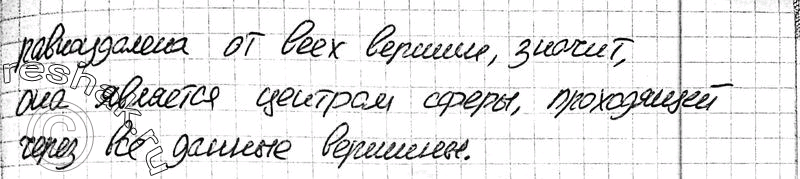 равноудалена от всех вершин, значит,
она является центром сферы, проходящей
через все данные вершины.
reshak.ru